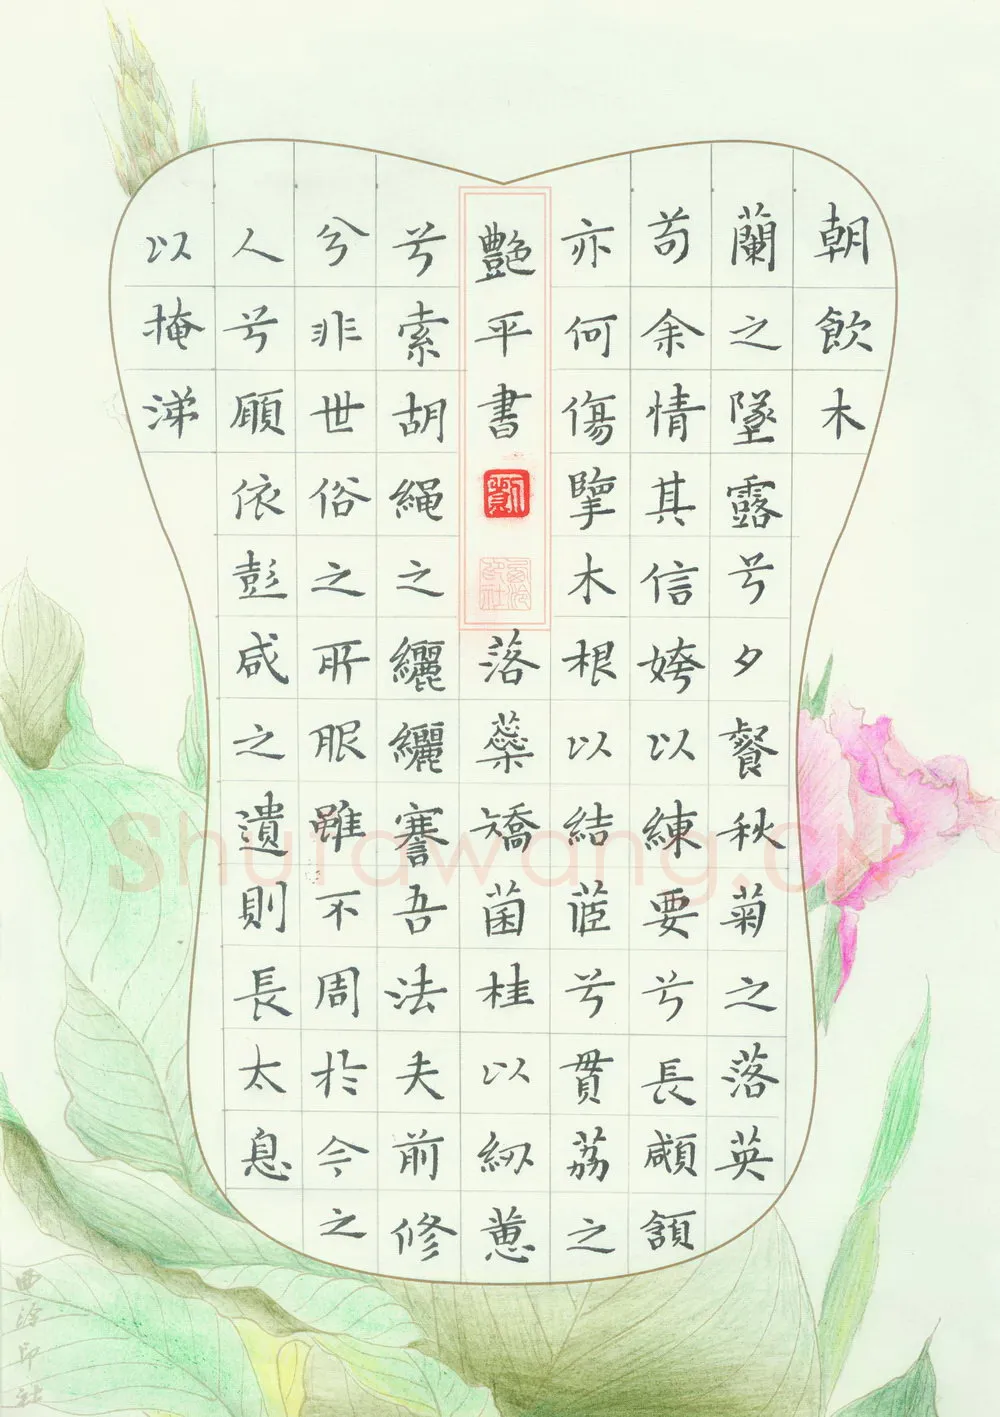 朝飲木
蘭之墜露兮夕餐秋菊之落英
苟余情其信姱以練要兮長顑頷
亦何傷擥木根以結茝兮貫荔之
落蘂矯菌桂以紉蕙
兮索胡繩之纚纚謇吾法夫前修
兮非世俗之所服雖不周於今之
人兮願依彭咸之遺則長太息
以掩涕
艷平書
西泠印社
西泠印社
Shufawang.CN